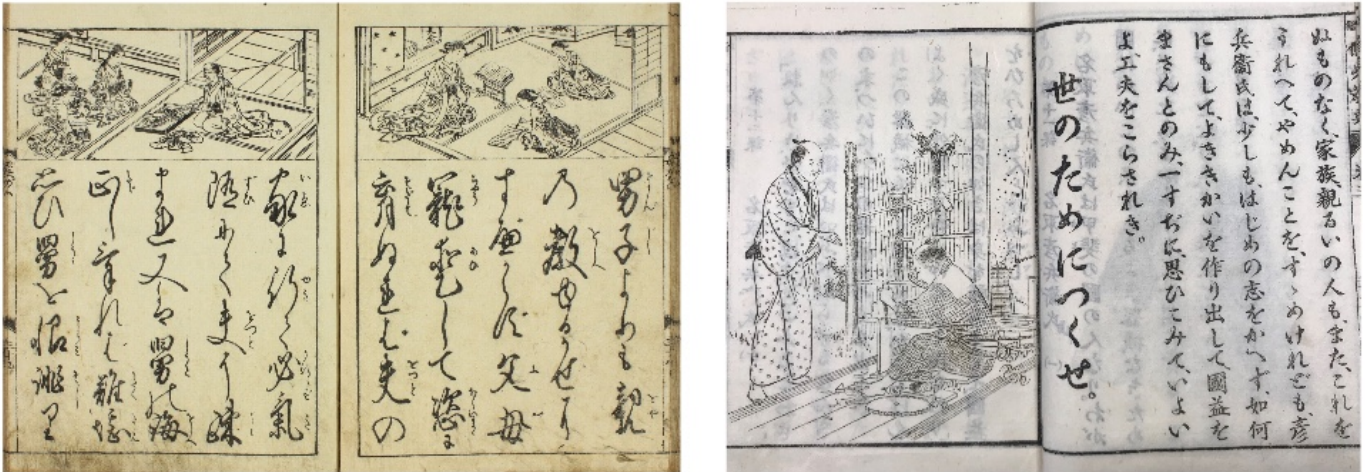 男子よりも親
乃教ゆるかせに
すべからず父母
寵愛して恣に
育ぬれば夫の
家に行て必氣
随にて夫に疎
まれ又は舅の誨
正しければ難堪
思ひ舅を恨誹り
ぬものなく、家族親るいの人も、また、これを
うれへて、やめんことを、すゝめけれども、彦
兵衞氏は、少しも、はじめの志をかへず、如何
にもして、よききかいを作り出して、國益を
まさんとのみ、一すぢに思ひこみて、いよい
よ、工夫をこらされき。
世のためにつくせ。